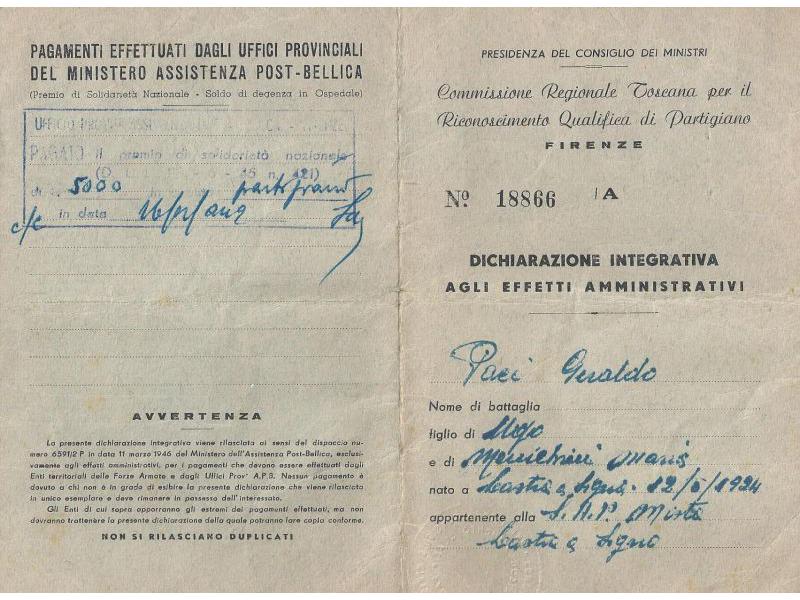 PAGAMENTI EFFETTUATI DAGLI UFFICI PROVINCIALI
DEL MINISTERO ASSISTENZA POST-BELLICA
(Premio di Solidarietà Nazionale - Soldo di degenza in Ospedale)
PAGATO il premio di solidarietà nazionale
di L. 5000
c/c in data
AVVERTENZA
La presente dichiarazione integrativa viene rilasciata ai sensi del dispaccio nu-
mero 6591/2 P in data 11 marzo 1946 del Ministero dell'Assistenza Post-Bellica, esclusi-
vamente agli effetti amministrativi, per i pagamenti che devono essere effettuati dagli
Enti territoriali delle Forze Armate e dagli Uffici Prov' A.P.B. Nessun pagamento è
dovuto a chi non è in grado di esibire la presente dichiarazione che viene rilasciata
in unico esemplare e deve rimanere in possesso dell'interessato.
Gli Enti di cui sopra apporranno gli estremi dei pagamenti effettuati, ma non
dovranno trattenere la presente dichiarazione della quale potranno fare copia conforme.
NON SI RILASCIANO DUPLICATI
PRESIDENZA DEL CONSIGLIO DEI MINISTRI
Commissione Regionale Toscana per il
Riconoscimento Qualifica di Partigiano
FIRENZE
Nº 18866 /A
DICHIARAZIONE INTEGRATIVA
AGLI EFFETTI AMMINISTRATIVI
Paci Geraldo
Nome di battaglia
figlio di Ugo
e di Menichini Maria
nato a Lastra a Signa - 12/6/1924
appartenente alla S.A.P. Mista
Lastra a Signa